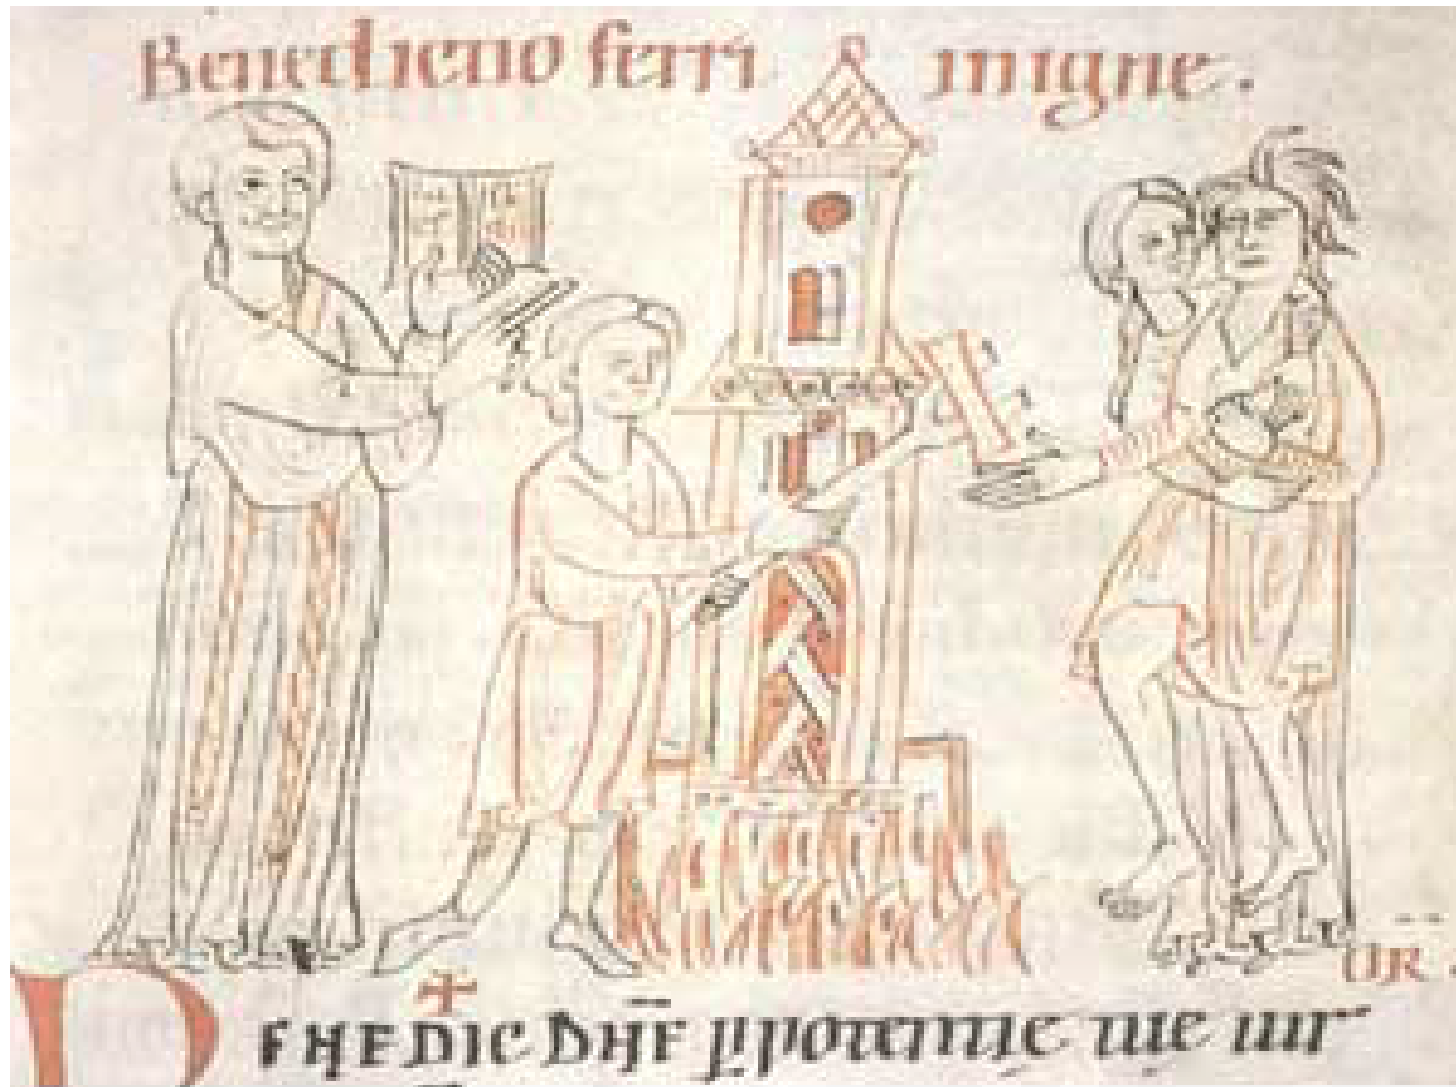 Benedictio ferri in igne.
BENEDIC DN̄E ꝑ potentie tue uir